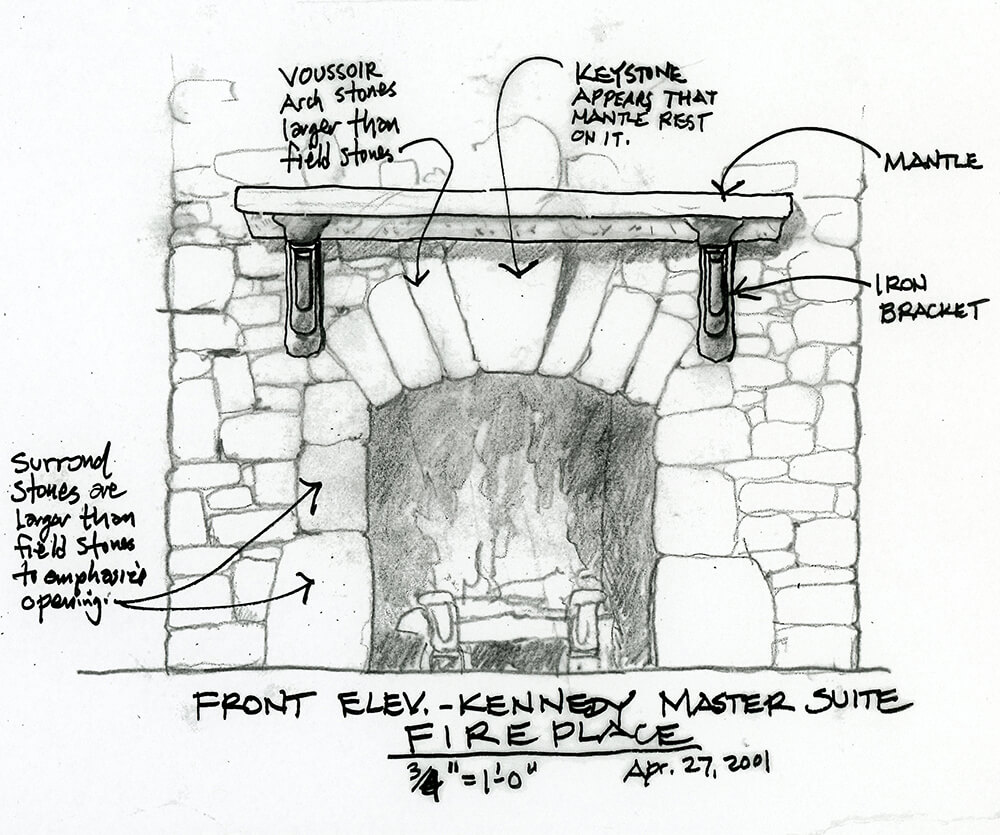 VOUSSOIR
Arch stones
larger than
field stones
KEYSTONE
APPEARS THAT
MANTLE REST
ON IT.
MANTLE
IRON
BRACKET
Surrond
Stones are
Larger than
field stones
to emphasize
opening.
FRONT ELEV. - KENNEDY MASTER SUITE
FIREPLACE
3/4" = 1'-0"
Apr. 27, 2001